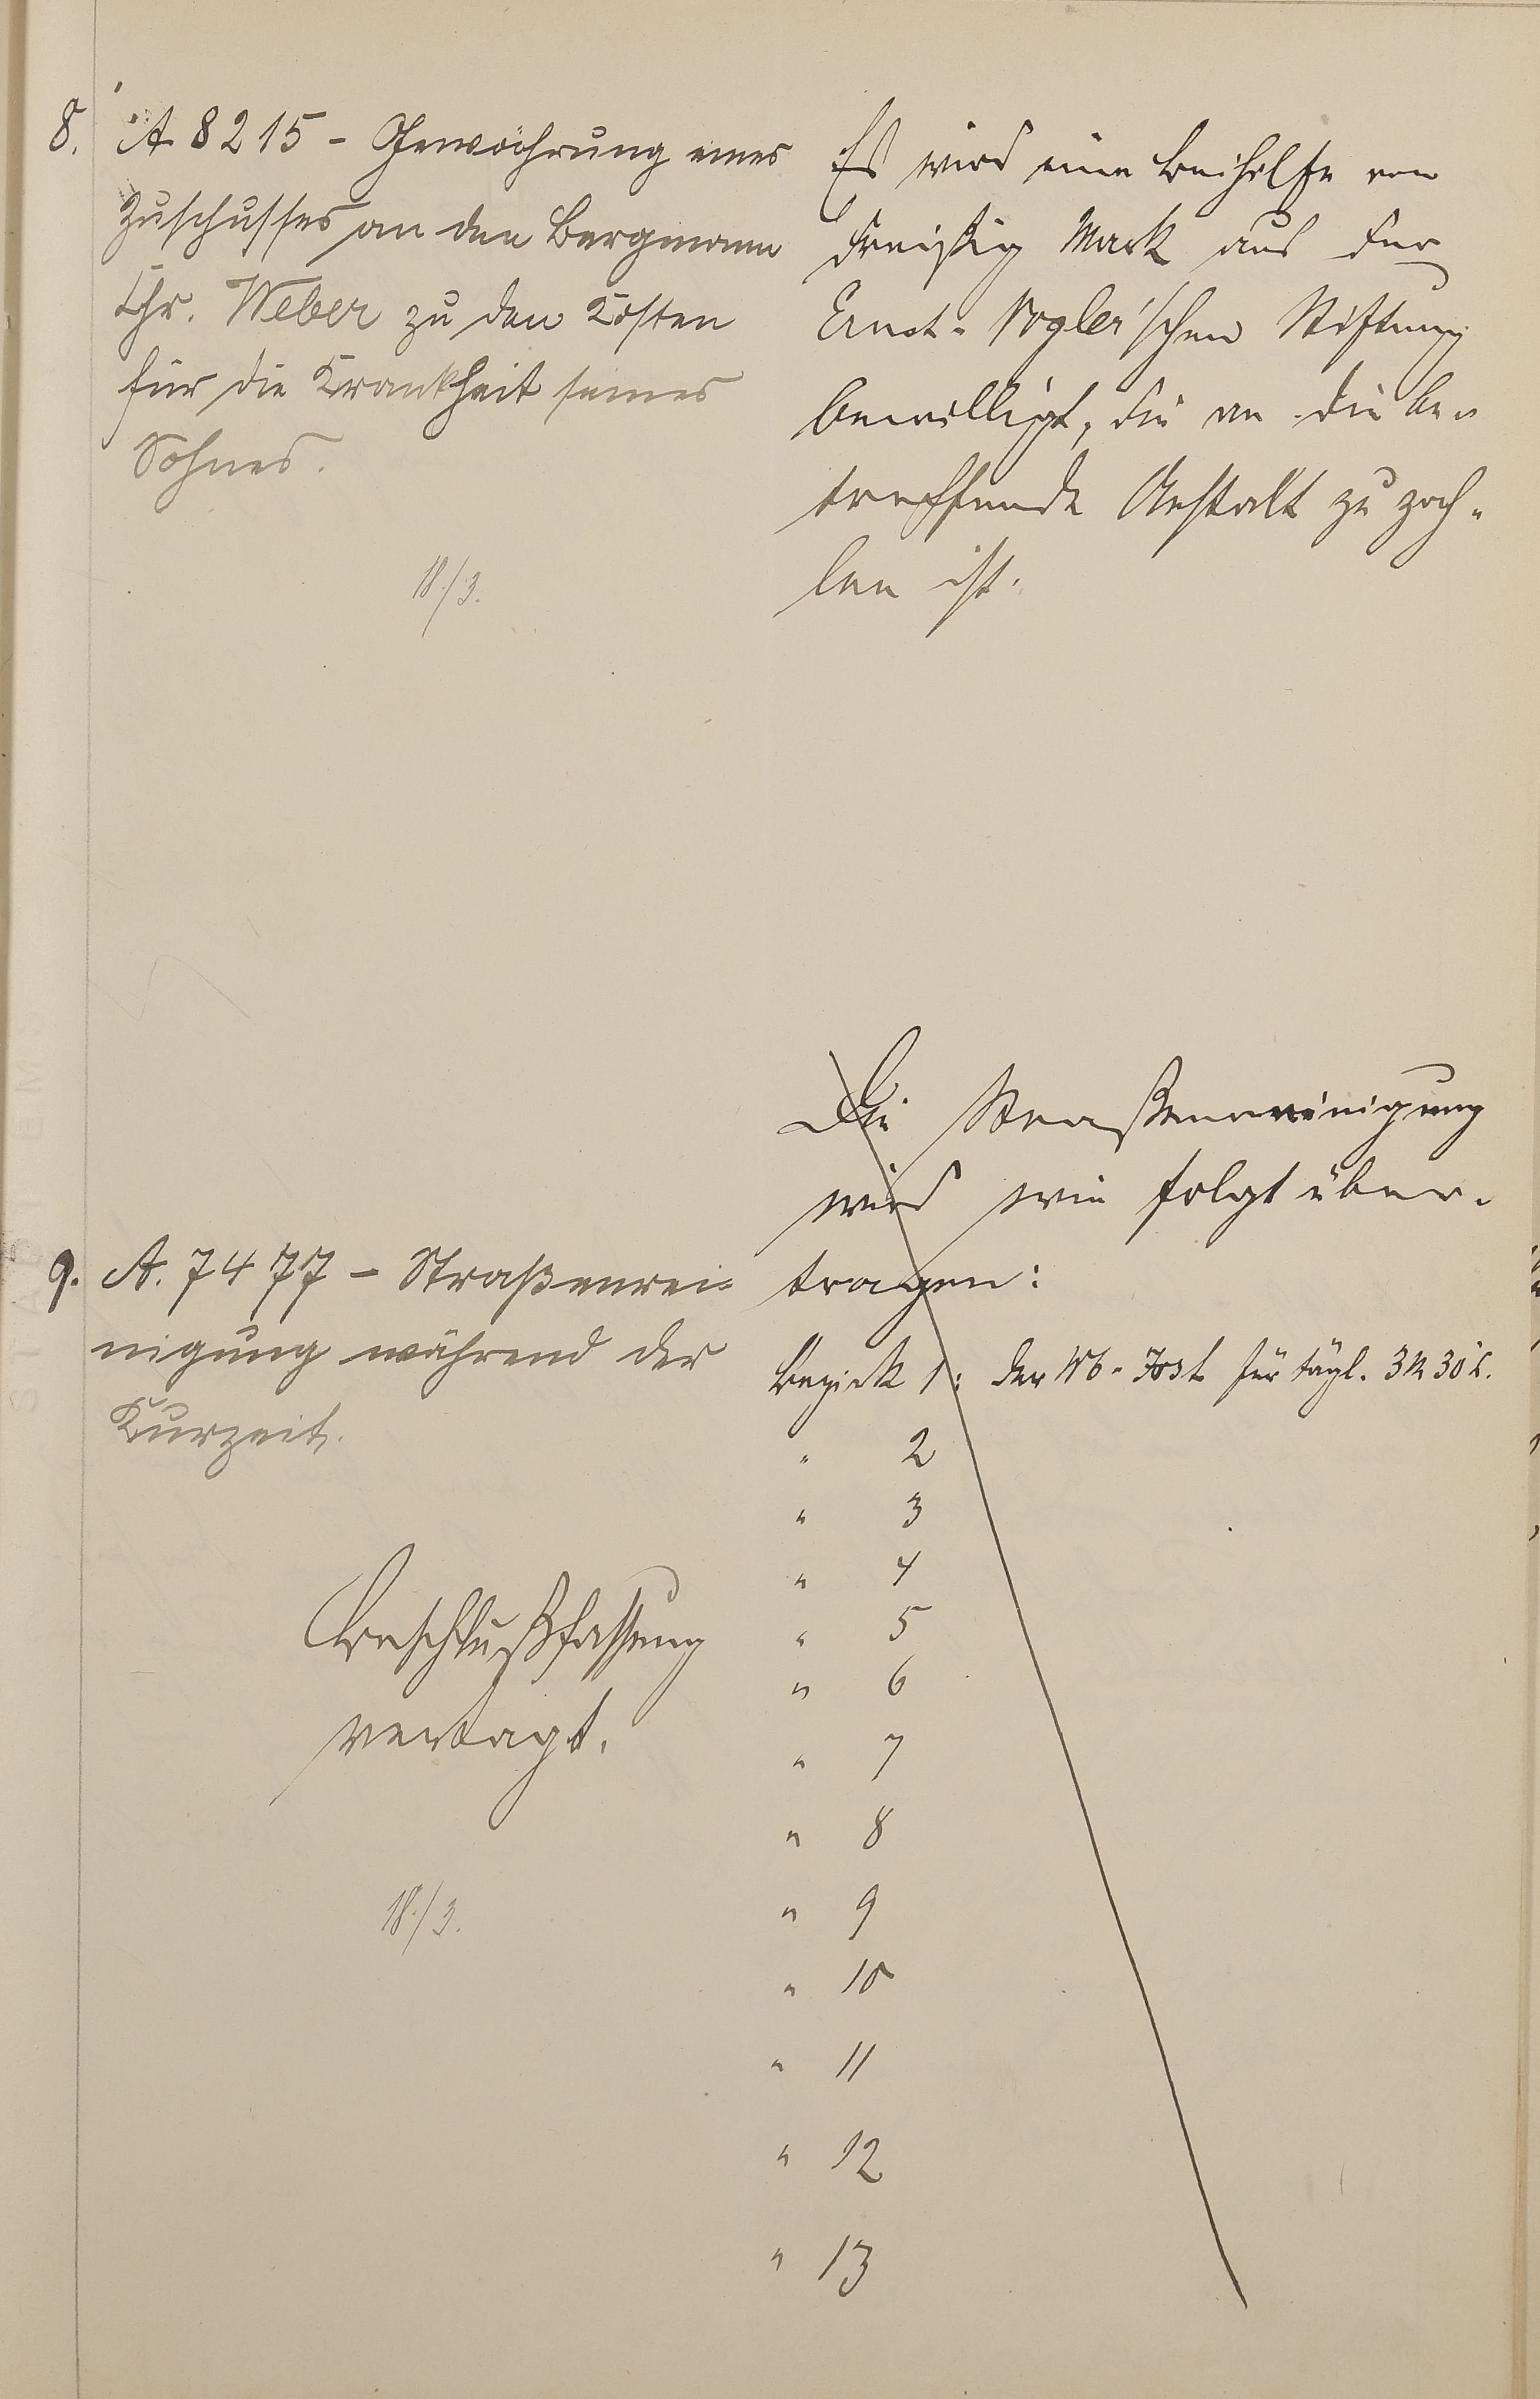 8. A 8215 - Gewährung eines
Zuschusses an den Bergmann
Chr. Weber zu den Kosten
für die Krankheit seines
Sohnes.
18./3.
Es wird eine Beihilfe von
dreißig Mark aus der
Ernst-Vogler'schen Stiftung
bewilligt, die an die be-
treffende Anstalt zu zah-
len ist.
9. A. 7477 - Straßenrei-
nigung während der
Kurzeit.
Beschlußfassung
vertagt.
18./3.
Die Straßenreinigung
wird wie folgt über-
tragen:
Bezirk 1: der Wb. Jost für tägl. 3 M 30 S.
" 2
" 3
" 4
" 5
" 6
" 7
" 8
" 9
" 10
" 11
" 12
" 13